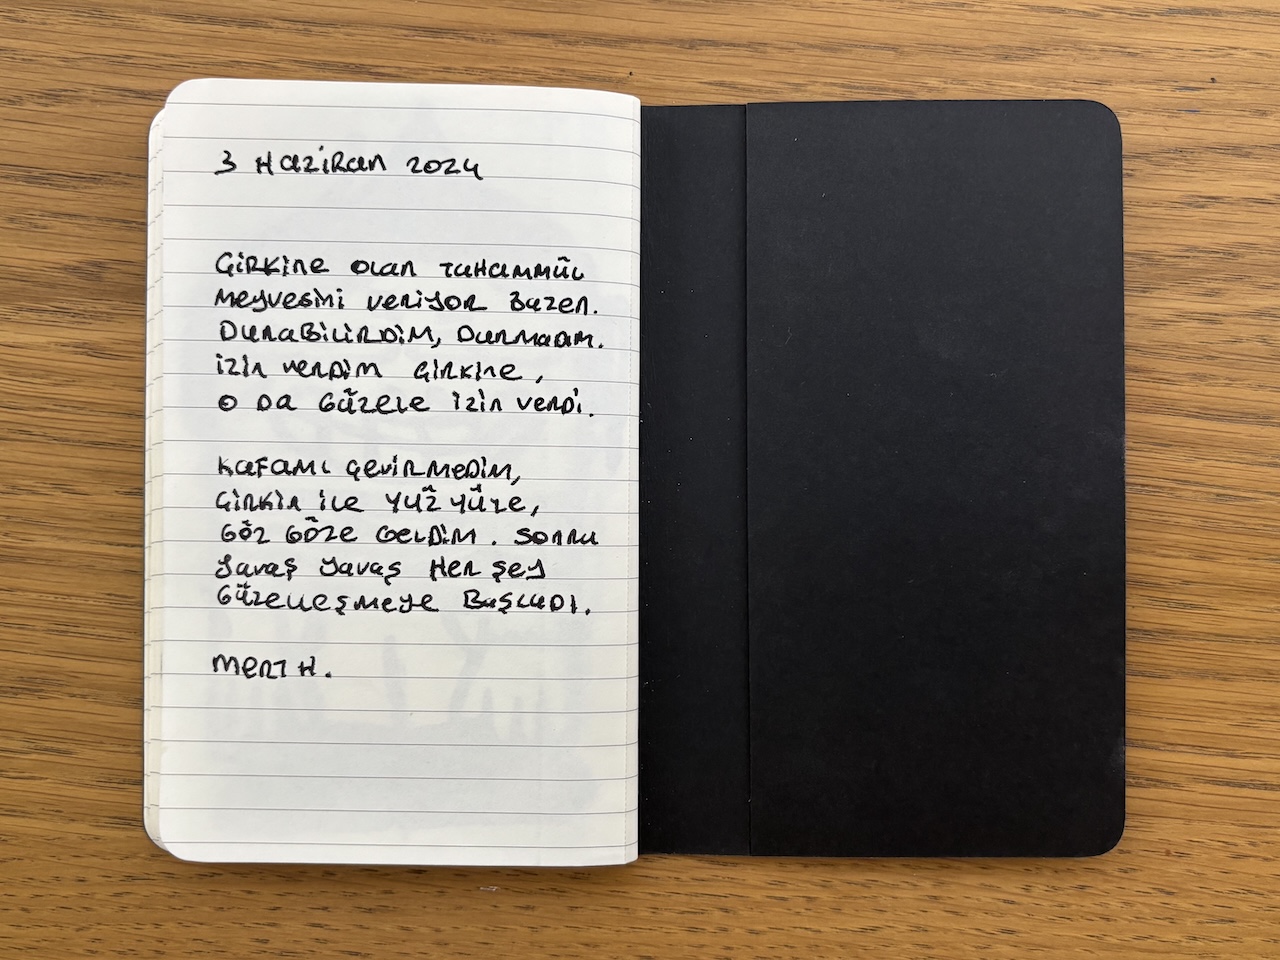 3 Haziran 2024
Çirkine olan tahammül
meyvesini veriyor bazen.
Durabilirdim, durmadım.
İzin verdim çirkine,
o da güzele izin verdi.
Kafamı çevirmedim,
çirkin ile yüz yüze,
göz göze geldim. Sonra
yavaş yavaş her şey
güzelleşmeye başladı.
Mert H.